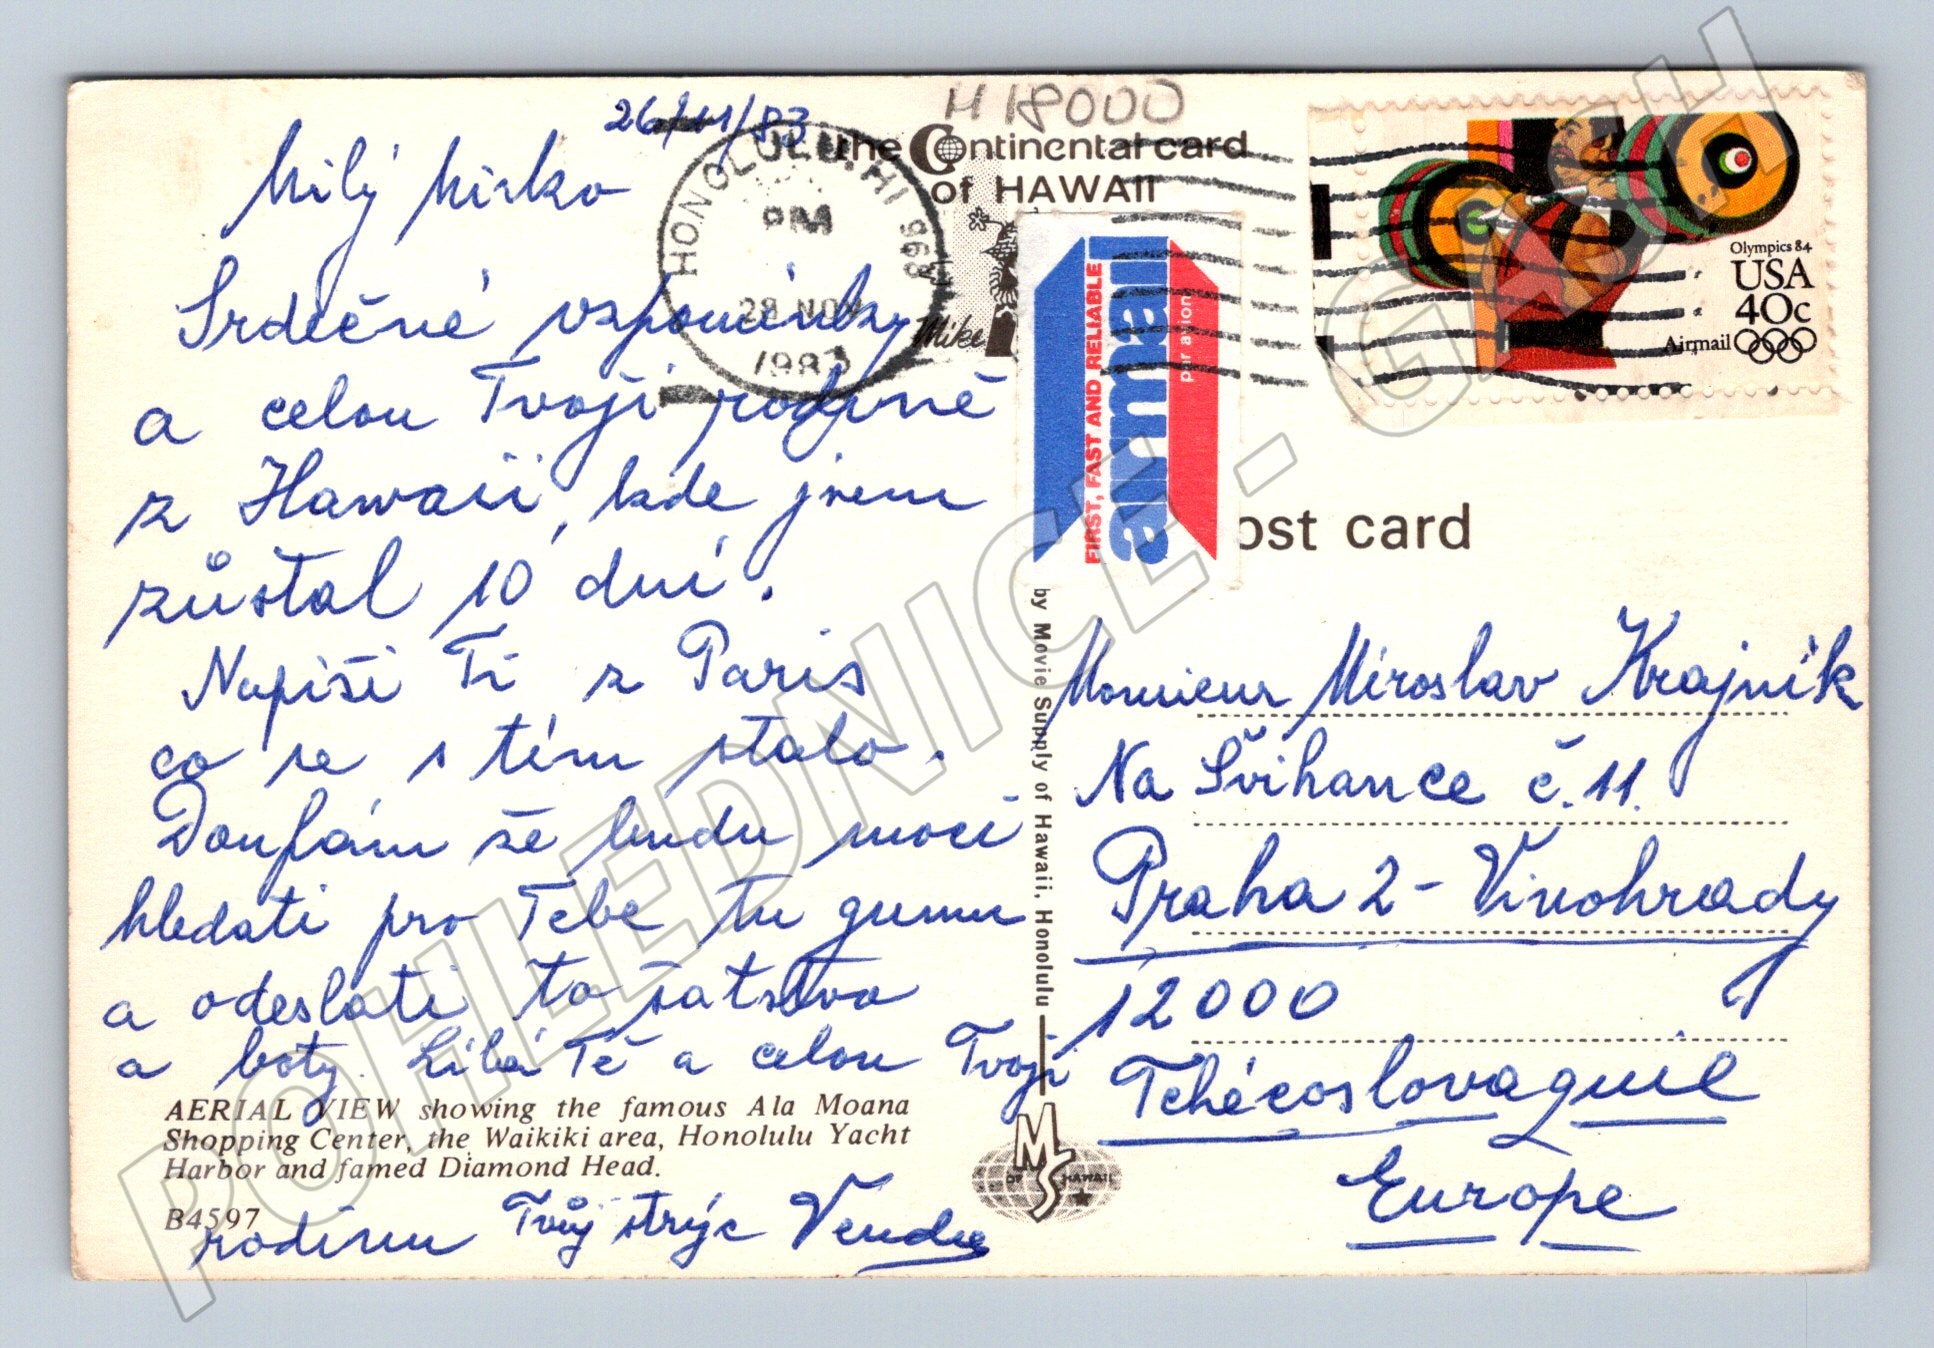 H 18000
26/11/83
Milý Mirko
Srdečné vzpomínky
a celou Tvoji rodině
z Hawaii, kde jsem
zůstal 10 dní.
Napiši Ti z Paris
co se s tím stalo.
Doufám že budu moci
hledati pro Tebe tu gumu
a odeslati to šatstvo
a boty. Líbá Tě a celou Tvoji
rodinu Tvůj strýc
AERIAL VIEW showing the famous Ala Moana
Shopping Center, the Waikiki area, Honolulu Yacht
Harbor and famed Diamond Head.
B4597
HONOLULU, HI 968
PM
28 NOV
1983
Mike
the Continental card
of HAWAII
FIRST, FAST AND RELIABLE
airmail
par avion
Olympics 84
USA
40c
Airmail
ost card
by Movie Supply of Hawaii, Honolulu
MS
OF HAWAII
Monsieur Miroslav Krajník
Na Švihance č. 11.
Praha 2 - Vinohrady
12000
Tchécoslovaquie
Europe
POHLEDNICE - GASH